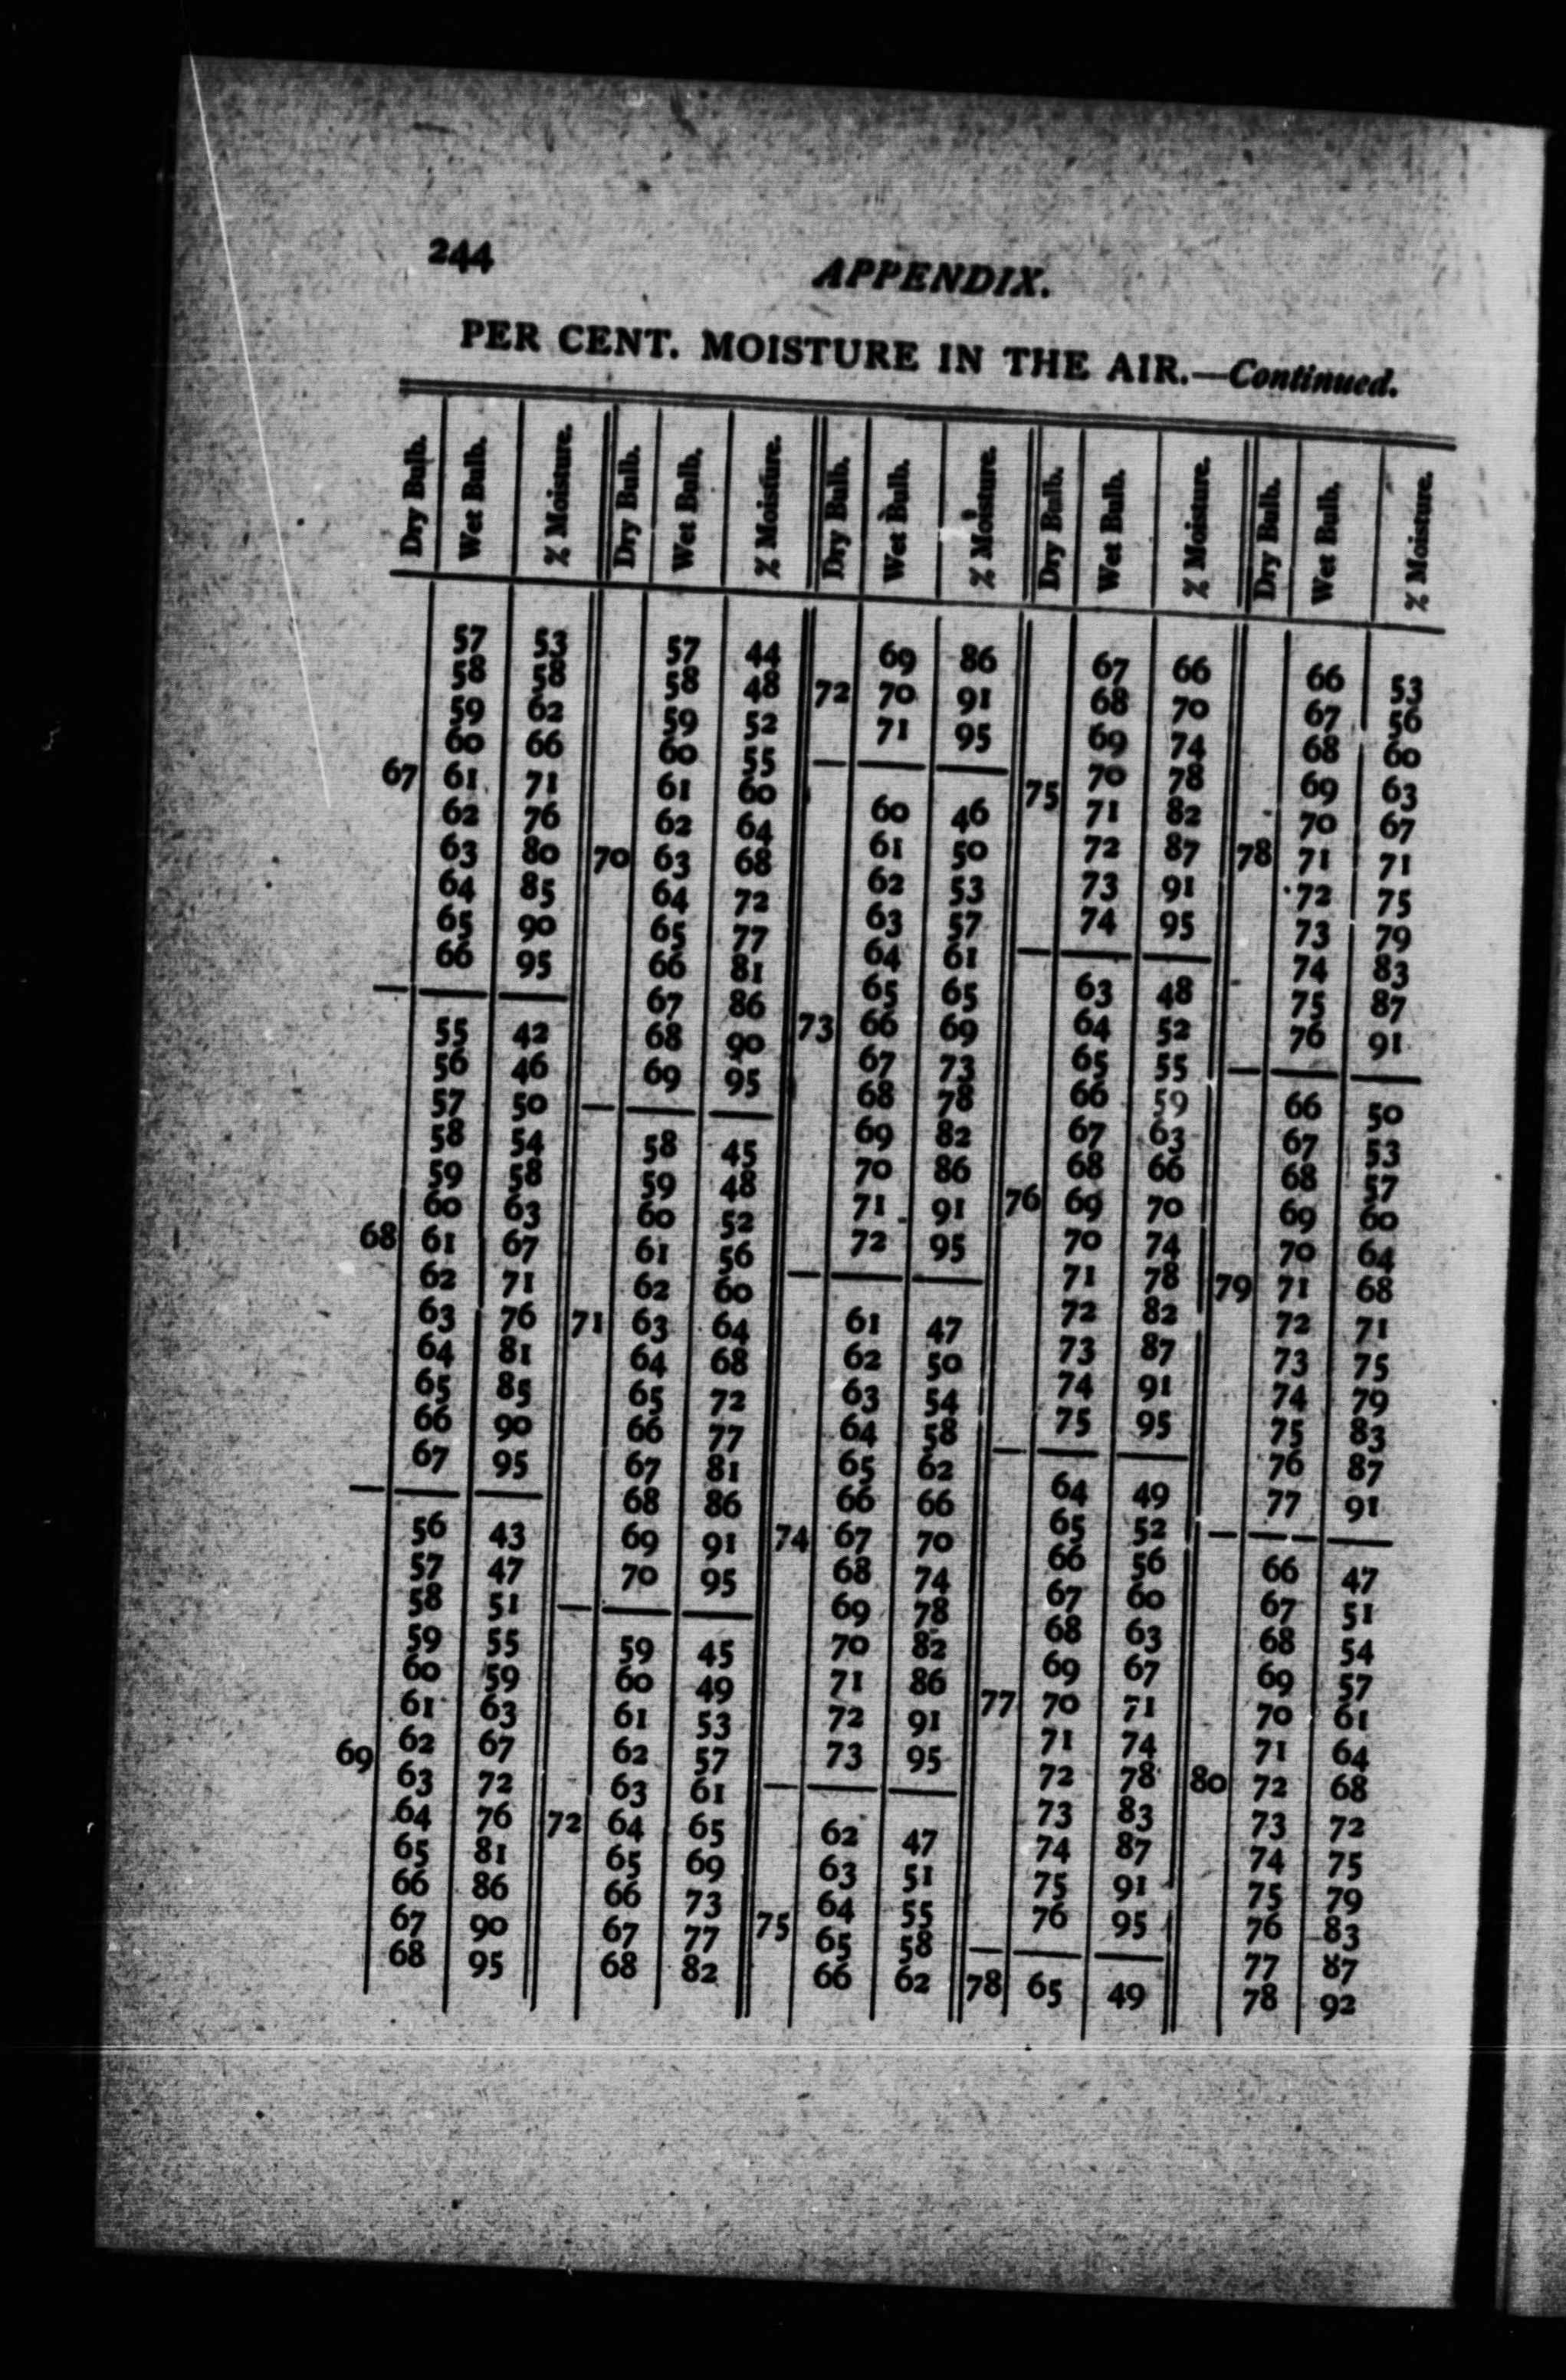 244
APPENDIX.
PER CENT. MOISTURE IN THE AIR.—Continued.
Dry Bulb. Wet Bulb. % Moisture. Dry Bulb. Wet Bulb. % Moisture. Dry Bulb. Wet Bulb. % Moisture. Dry Bulb. Wet Bulb. % Moisture. Dry Bulb. Wet Bulb. % Moisture.
57 53
58 58
59 62
60 66
67 61 71
62 76
63 80
64 85
65 90
66 95
55 42
56 46
57 50
58 54
59 58
60 63
68 61 67
62 71
63 76
64 81
65 85
66 90
67 95
56 43
57 47
58 51
59 55
60 59
61 63
69 62 67
63 72
64 76
65 81
66 86
67 90
68 95
57 44
58 48
59 52
60 55
61 60
62 64
70 63 68
64 72
65 77
66 81
67 86
68 90
69 95
58 45
59 48
60 52
61 56
62 60
71 63 64
64 68
65 72
66 77
67 81
68 86
69 91
70 95
59 45
60 49
61 53
62 57
63 61
72 64 65
65 69
66 73
67 77
68 82
69 86
72 70 91
71 95
60 46
61 50
62 53
63 57
64 61
65 65
73 66 69
67 73
68 78
69 82
70 86
71 91
72 95
61 47
62 50
63 54
64 58
65 62
66 66
74 67 70
68 74
69 78
70 82
71 86
72 91
73 95
62 47
63 51
64 55
75 65 58
66 62
67 66
68 70
69 74
70 78
75 71 82
72 87
73 91
74 95
63 48
64 52
65 55
66 59
67 63
68 66
76 69 70
70 74
71 78
72 82
73 87
74 91
75 95
64 49
65 52
66 56
67 60
68 63
69 67
77 70 71
71 74
72 78
73 83
74 87
75 91
76 95
78 65 49
66 53
67 56
68 60
69 63
70 67
78 71 71
72 75
73 79
74 83
75 87
76 91
66 50
67 53
68 57
69 60
70 64
79 71 68
72 71
73 75
74 79
75 83
76 87
77 91
66 47
67 51
68 54
69 57
70 61
71 64
80 72 68
73 72
74 75
75 79
76 83
77 87
78 92